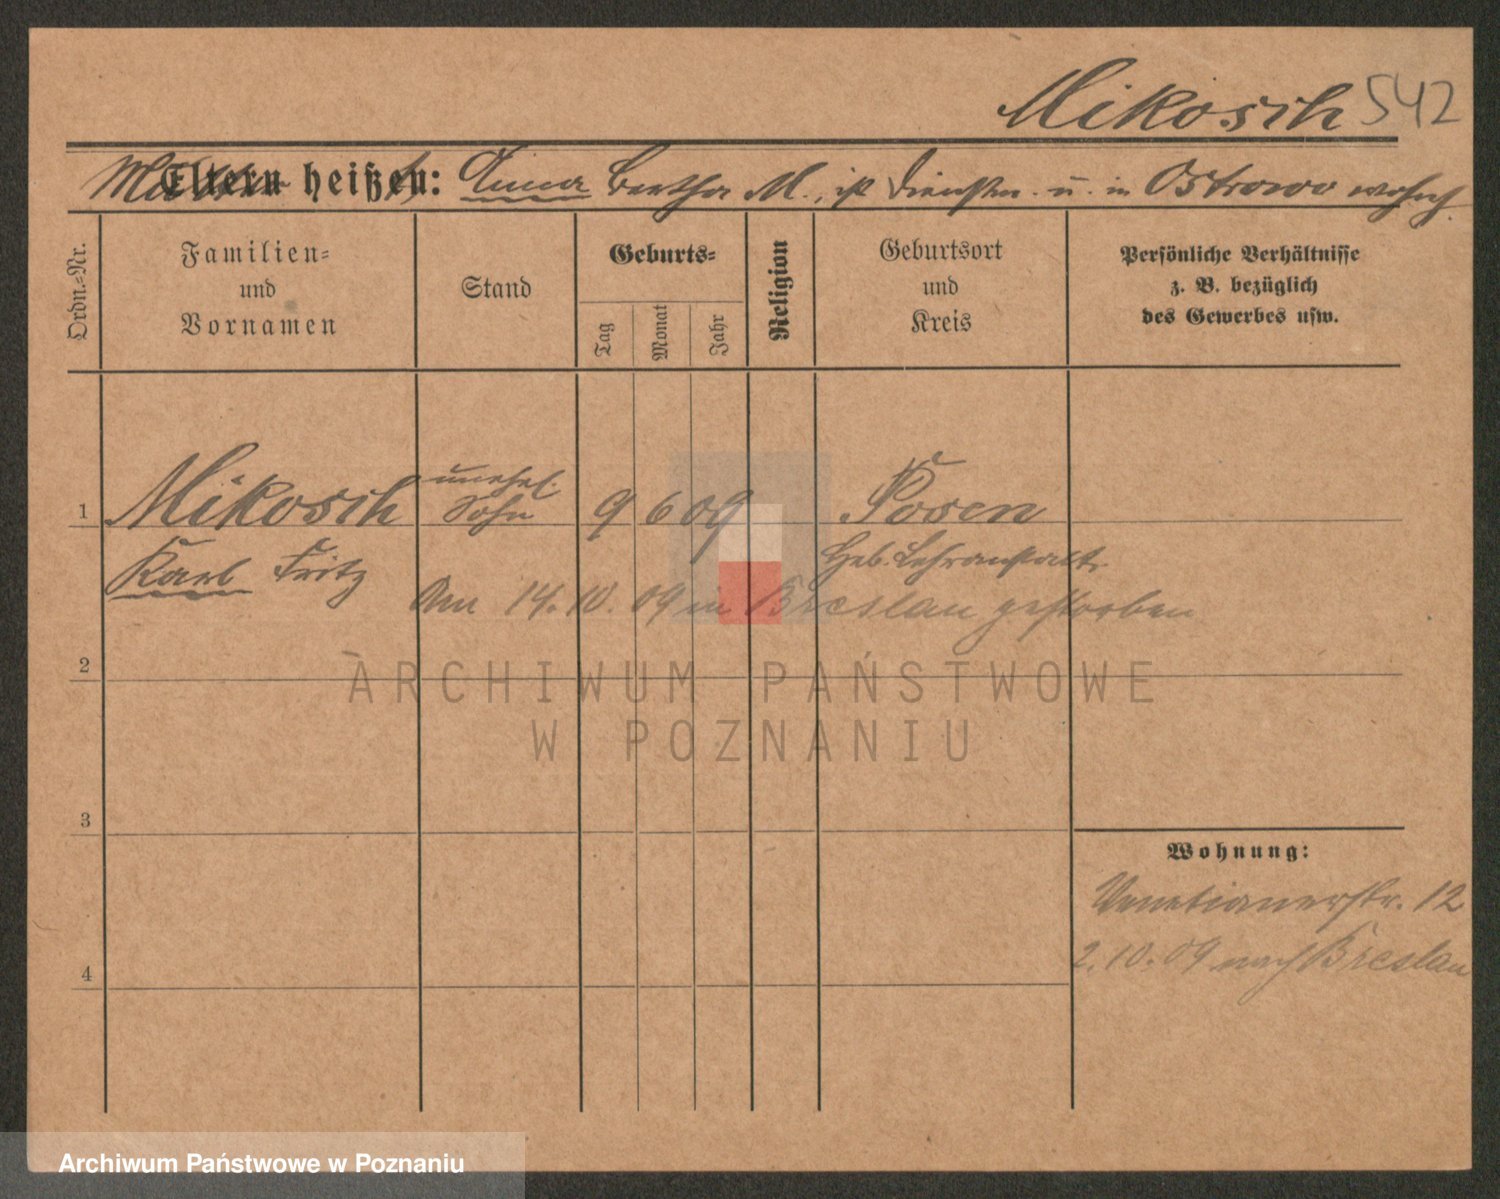 Mikosch 542
Mutter Eltern heißen: heißt Anna Bertha M., ist Dienstm. u. in Ostrowo wohnh.
Ordn.-Nr.
Familien-
und
Vornamen
Stand
Geburts-
Tag
Monat
Jahr
Religion
Geburtsort
und
Kreis
Persönliche Verhältnisse
z. B. bezüglich
des Gewerbes usw.
1
Mikosch
Karl Fritz
unehel.
Sohn
9 6 09
Posen
Heb. Lehranstalt.
Am 14. 10. 09 in Breslau gestorben
2
3
4
Wohnung:
Venetianerstr. 12
2. 10. 09 nach Breslau
ARCHIWUM PAŃSTWOWE
W POZNANIU
Archiwum Państwowe w Poznaniu